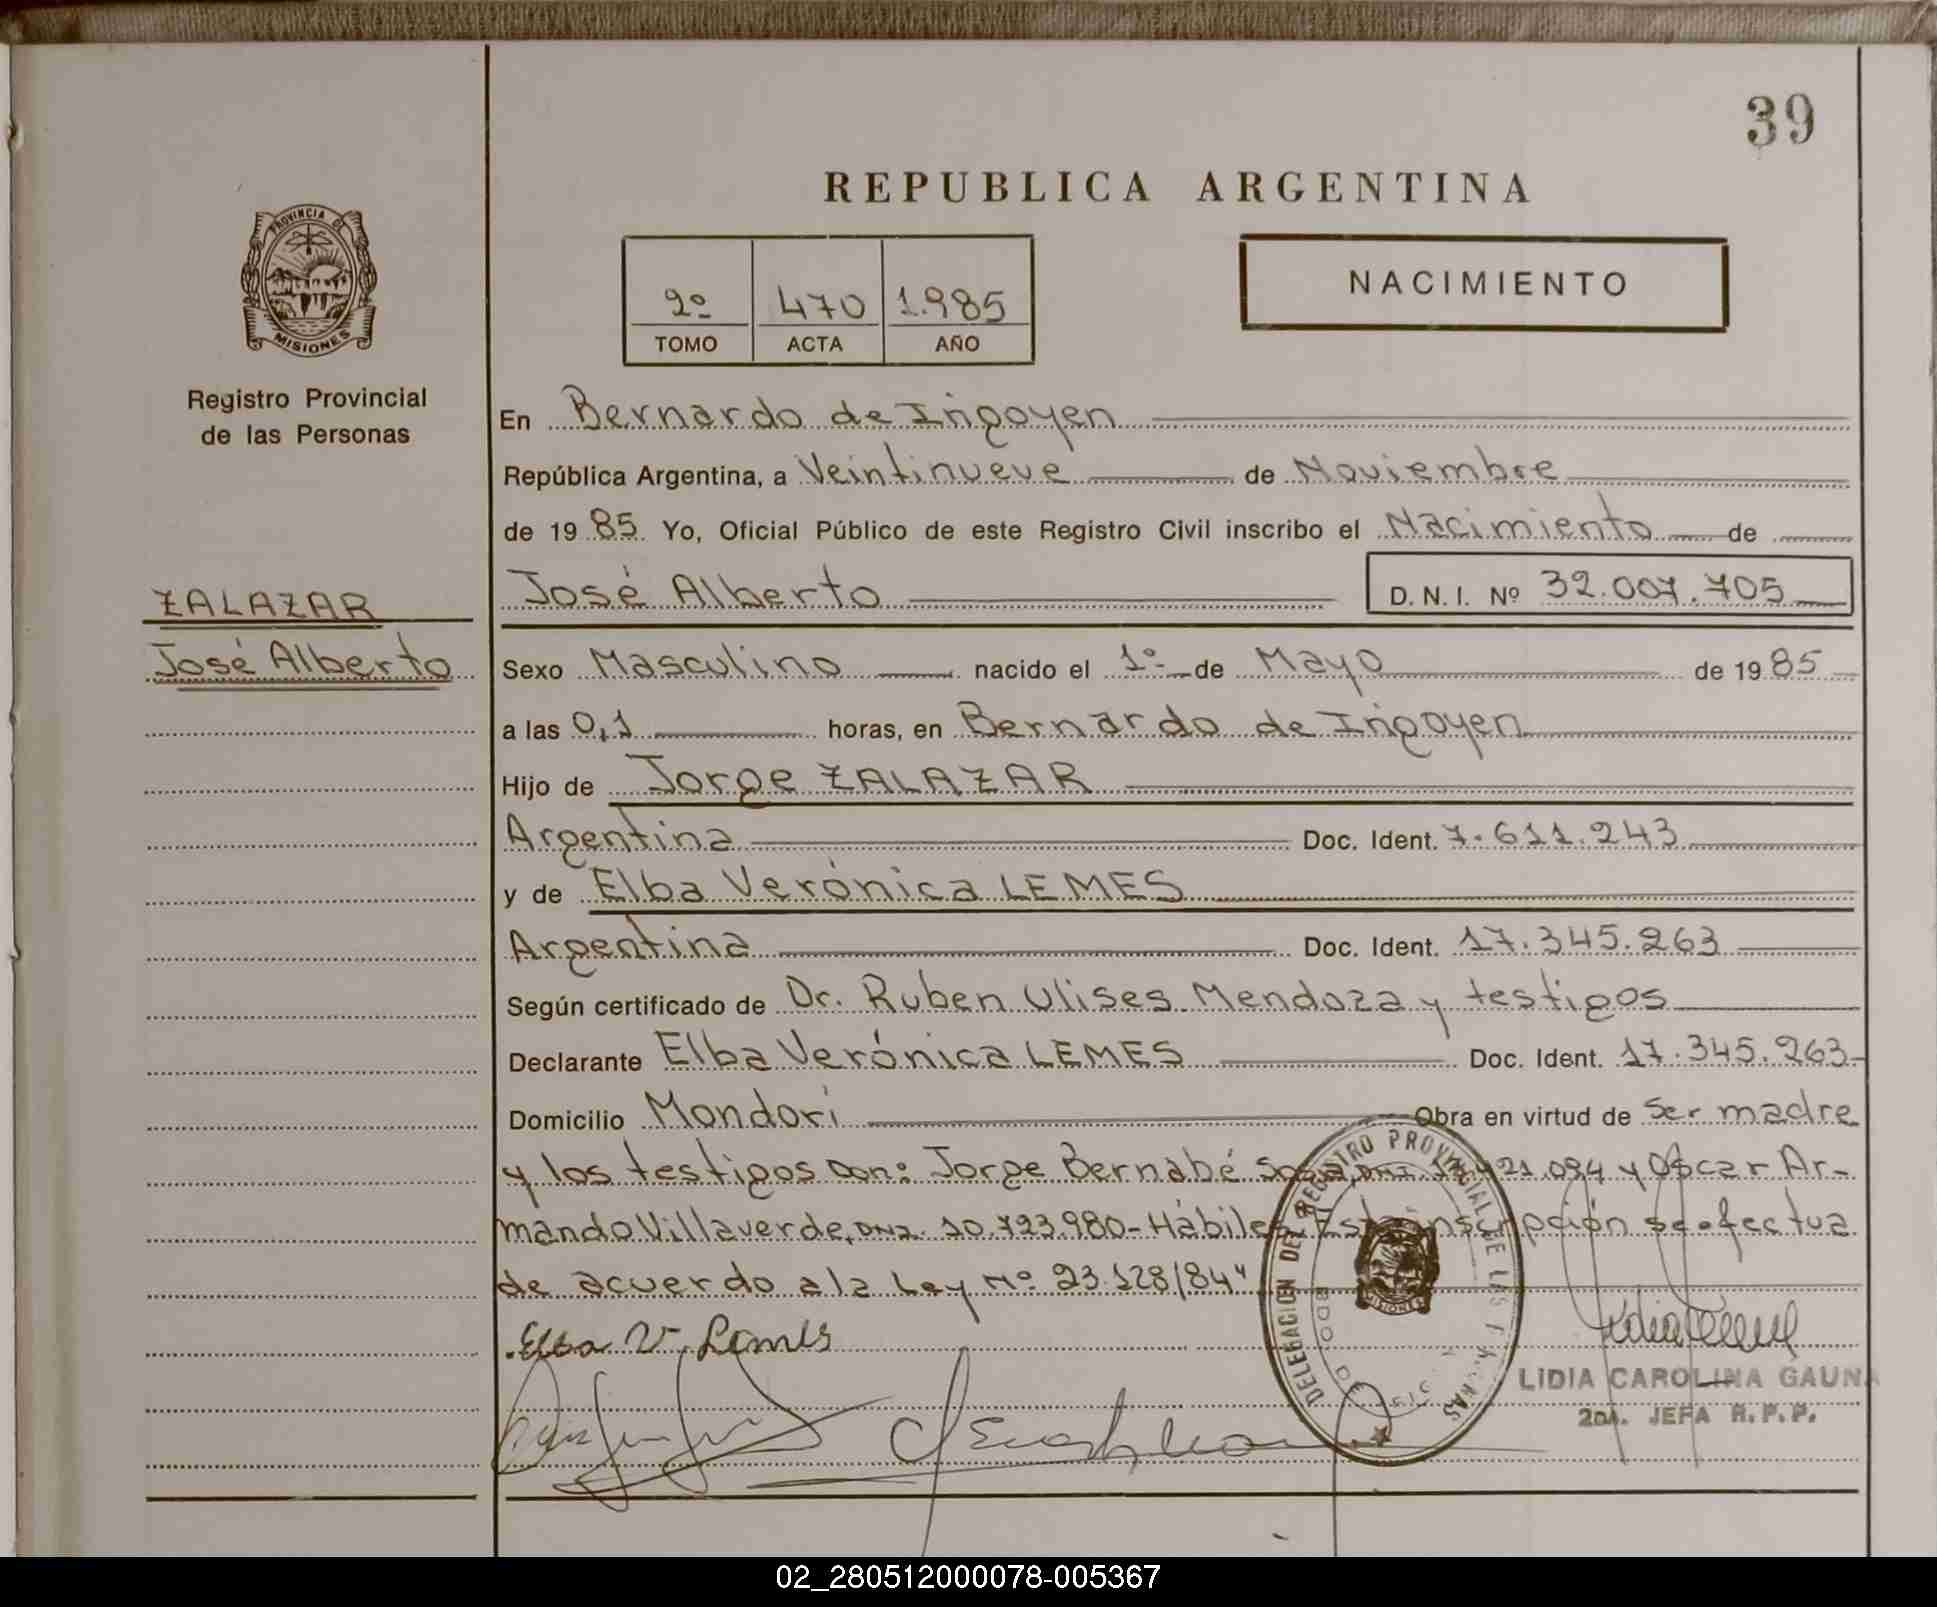 39
REPUBLICA ARGENTINA
PROVINCIA DE
MISIONES
Registro Provincial
de las Personas
2º 470 1.985
TOMO ACTA AÑO
NACIMIENTO
En Bernardo de Irigoyen
República Argentina, a Veintinueve de Noviembre
de 1985. Yo, Oficial Público de este Registro Civil inscribo el Nacimiento de
ZALAZAR
José Alberto
José Alberto D. N. I. Nº 32.007.705
Sexo Masculino nacido el 1º de Mayo de 1985
a las 0,1 horas, en Bernardo de Irigoyen
Hijo de Jorge ZALAZAR
Argentina Doc. Ident. 7.611.243
y de Elba Verónica LEMES
Argentina Doc. Ident. 17.345.263
Según certificado de Dr. Ruben Ulises Mendoza y testigos
Declarante Elba Verónica LEMES Doc. Ident. 17.345.263
Domicilio Mondori Obra en virtud de Ser madre
y los testigos Don: Jorge Bernabé Sosa, DNI. y Oscar Ar-
mando Villaverde, DNI. 10.723.980- Hábiles Esta inscripción se efectua
de acuerdo a la Ley Nº 23.128/84"
Elba V. Lemes
DELEGACION DEL REGISTRO PROVINCIAL DE LAS PERSONAS
MISIONES
LIDIA CAROLINA GAUNA
2da. JEFA R.P.P.
02_280512000078-005367